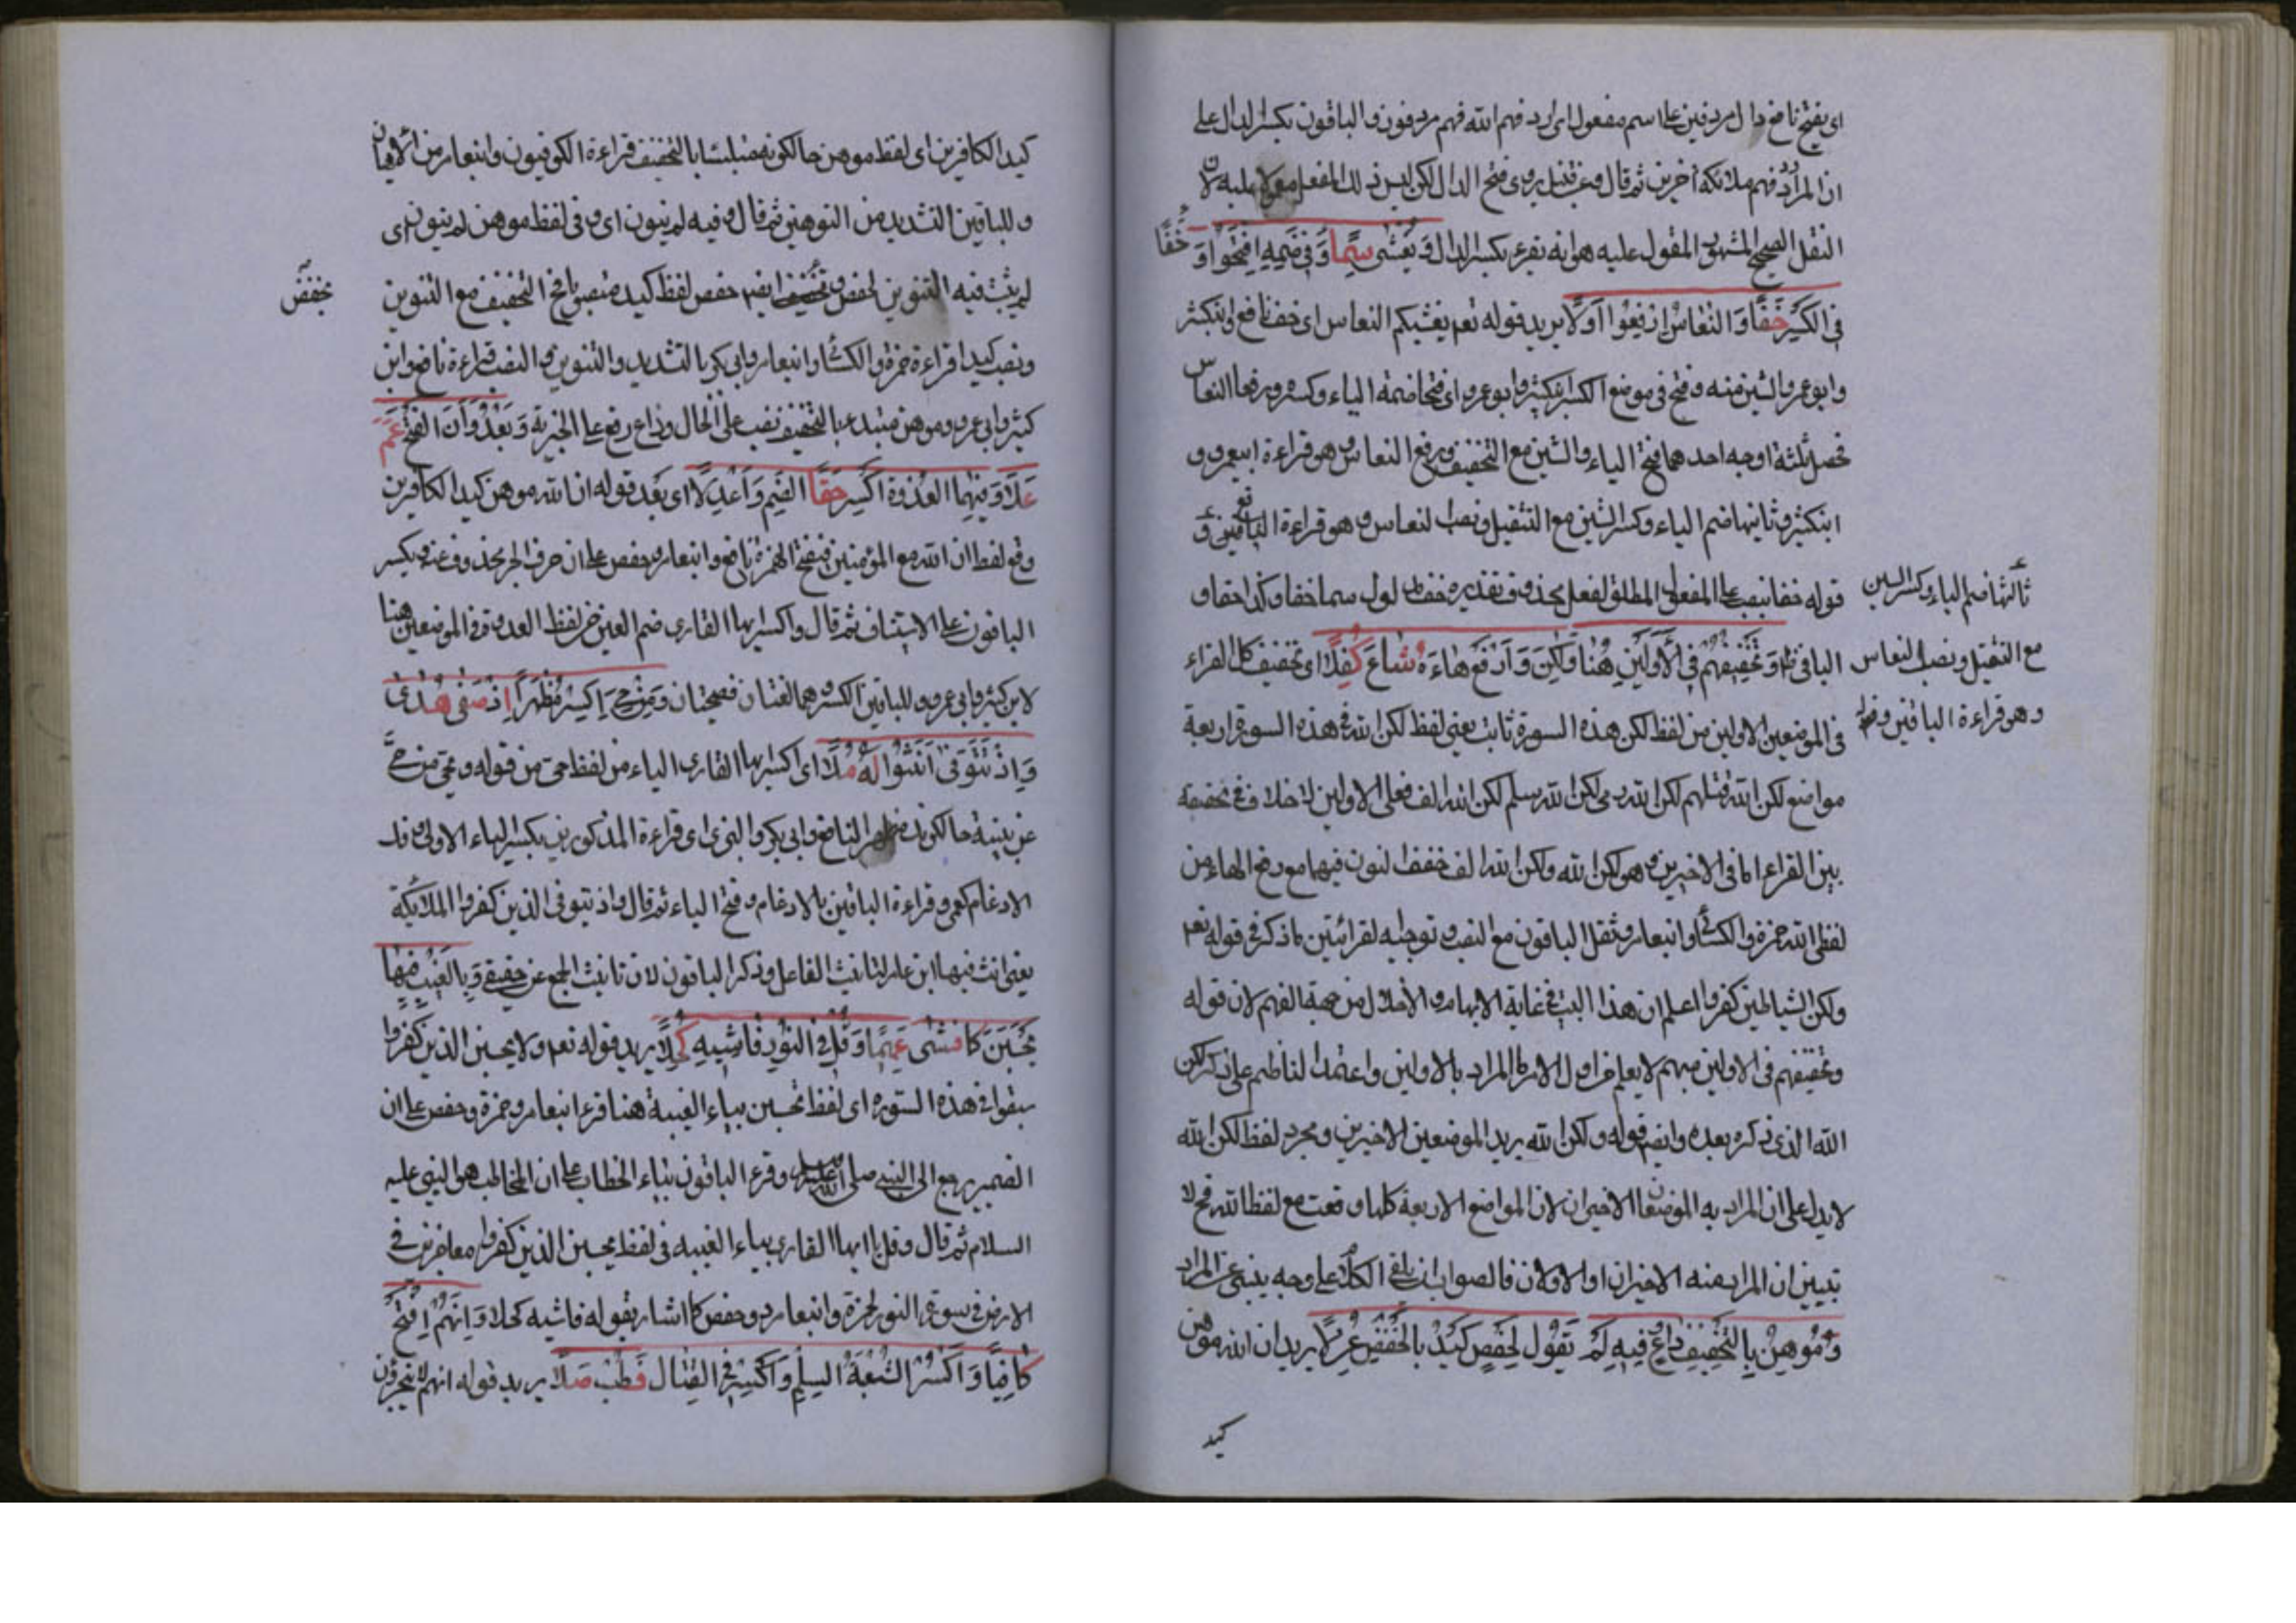 اى يفتح نافع دال مردفين على اسم مفعول اى اردفهم الله فهم مردفون والباقون بكسر الدال على
ان المراد فهم ملائكة اخرين ثم قال وعن قنبل يروى فتح الدال لكن ليس ذلك المفعل معولا عليه لان
النقل الصحيح المشهور المقول عليه هو انه يقرء بكسر الدال وَيُغْشى سَمَا وَفى ضَمِّهِ افْتَحُوا وَ
فى الكَسْرِ حَقًّا وَالنُّعَاسَ ارْفَعُوا اوَلَا يريد قوله تعم يغشيكم النعاس اى خفف نافع وابن كثير
وابو عمرو الشين منه وفتح فى موضع الكسر ابن كثير وابو عمرو اى فتحا ضمة الياء وكسره ورفعا النعاس
فحصل ثلثة اوجه احدهما فتح الياء والشين مع التخفيف ورفع النعاس وهو قراءة ابى عمرو و
ابن كثير وثانيها ضم الياء وكسر الشين مع التثقيل ونصب النعاس وهو قراءة الباقين و
ثالثها ضم الياء وكسر الشين
مع التثقيل ونصب النعاس
وهو قراءة الباقين
قوله خفا نصب على المفعول المطلق لفعل محذوف تقديره خففا لول سما خفا وكذا حقا و
الباقى ظ وَتَخْفِيفُهُمْ فى الاَوَّلَيْنِ هُنَا وَلكِنْ وَارْفَعْ هَاءَهُ شَاعَ كُفِّلَا اى تخفيف كل القراء
فى الموضعين الاولين من لفظ لكن هذه السورة ثابت يعنى لفظ لكن الله فى هذه السورة اربعة
مواضع لكن الله قتلهم لكن الله رمى لكن الله سلم لكن الله الف فعلى الاولين لا خلاف فى تخفيفه
بين القراء اما فى الاخيرين وهو لكن الله ولكن الله الف خفف النون فيهما مع رفع الهاء من
لفظ الله حمزة والكسائى وابن عامر وثقل الباقون مع النصب وتوجيه لقرائتين ما ذكر فى قوله تعم
ولكن الشياطين كفروا اعلم ان هذا البيت فى غاية الابهام والاخلال من جهة الفهم لان قوله
وتخفيفهم فى الاولين مبهم لا يعلم فى اول الامر ما المراد بالاولين واعتماد الناظم على ذكر لكن
الله الذى ذكره بعده وايضا قوله ولكن الله يريد الموضعين الاخيرين ومجرد لفظ لكن الله
لا يدل على ان المراد به الموضعان الاخيران لان المواضع الاربعة كلها وقعت مع لفظ الله فح لا
تبيين ان المراد منه الاخيران او الاولان فالصواب ان يلقى الكلام على وجه ينبى عن المراد
وَمُوهِنُ بِالتَّخْفِيفِ ذَاعَ وَفِيهِ لَمْ يُنَوَّن لِحَفْصٍ كَيْدَ بِالخَفْضِ عُوِّلَا يريد ان الله موهن
كيد
كيد الكافرين اى لفظ موهن حالكونه متلبسا بالتخفيف قراءة الكوفيون وابن عامر من الايهان
وللباقين التشديد من التوهين ثم قال وفيه لم ينون اى وفى لفظ موهن لم ينون اى
لم يثبت فيه التنوين لحفص ايضا حفص لفظ كيد التخفيف مع التنوين
يخفض
ونصب كيد قراءة حمزة والكسائى وابن عامر وابى بكر بالتشديد والتنوين والنصب قراءة نافع وابن
كثير وابى عمرو وموهن مبتدء بالتخفيف نصب على الحال وذاع رفع على الخبرية وَبَعْدُ وَاَنَّ الفَتْحُ عَمَّ
عُلًا وَفِيهِمَا العُدْوَةِ اكْسِر حَقًّا الضَّمَّ وَاعْدِلَا اى بعد قوله ان الله موهن كيد الكافرين
وقع لفظ ان الله مع المؤمنين فبفتح الهمزة نافع وابن عامر وحفص على ان حرف الجر محذوف عنه ويكسر
الباقون على الاستئناف ثم قال واكسر ايها القارى ضم العين من لفظ العدوة فى الموضعين هنا
لابن كثير وابى عمرو وللباقين الكسر وهما لغتان فصيحتان وَمَنْ حَيِىَ اكْسِرْ مُظْهِرًا اِذْ صَفَى هُدًى
وَاِذْ تَتَوَفَّى اَنِّثُوا لَهُ مُلَا اى اكسر ايها القارى الياء من لفظ حيى من قوله ويحيى من حىّ
عن بينة حالكونه مظهرا لنافع وابى بكر والبزى اى قراءة المذكورين بكسر الياء الاولى وفك
الادغام وقراءة الباقين بالادغام وفتح الياء ثم قال واذ تتوفى الذين كفروا الملائكة
يعنى انث فيها ابن عامر لتانيث الفاعل وذكر الباقون لان تانيث الجمع غير حقيقى وَبِالغَيْبِ فِيهَا
يَحْسَبَنَّ كَمَا فَشَى عَمِيمًا وَقُلْ فى النُّورِ فَاشِيهِ كَحَّلَا يريد قوله تعم ولا يحسبن الذين كفروا
سبقوا فى هذه السورة اى لفظ يحسبن بياء الغيبة هنا قرء ابن عامر وحمزة وحفص على ان
الضمير يرجع الى النبى صلى الله عليه وقرء الباقون بتاء الخطاب على ان المخاطب هو النبى عليه
السلام ثم قال وقل يا ايها القارى بياء الغيبة فى لفظ يحسبن الذين كفروا معاجزين فى
الارض فى سورة النور لحمزة وابن عامر وحفص كما اشار بقوله فاشيه كحلا وَاِنَّهُمُ افْتَحْ
كَافِيًا وَاكْسِرُوا لِشُعْبَةَ السَّلْمِ وَاكْسِرْ فى القِتَالِ فَطِبْ صِلَا يريد قوله انهم لا يعجزون